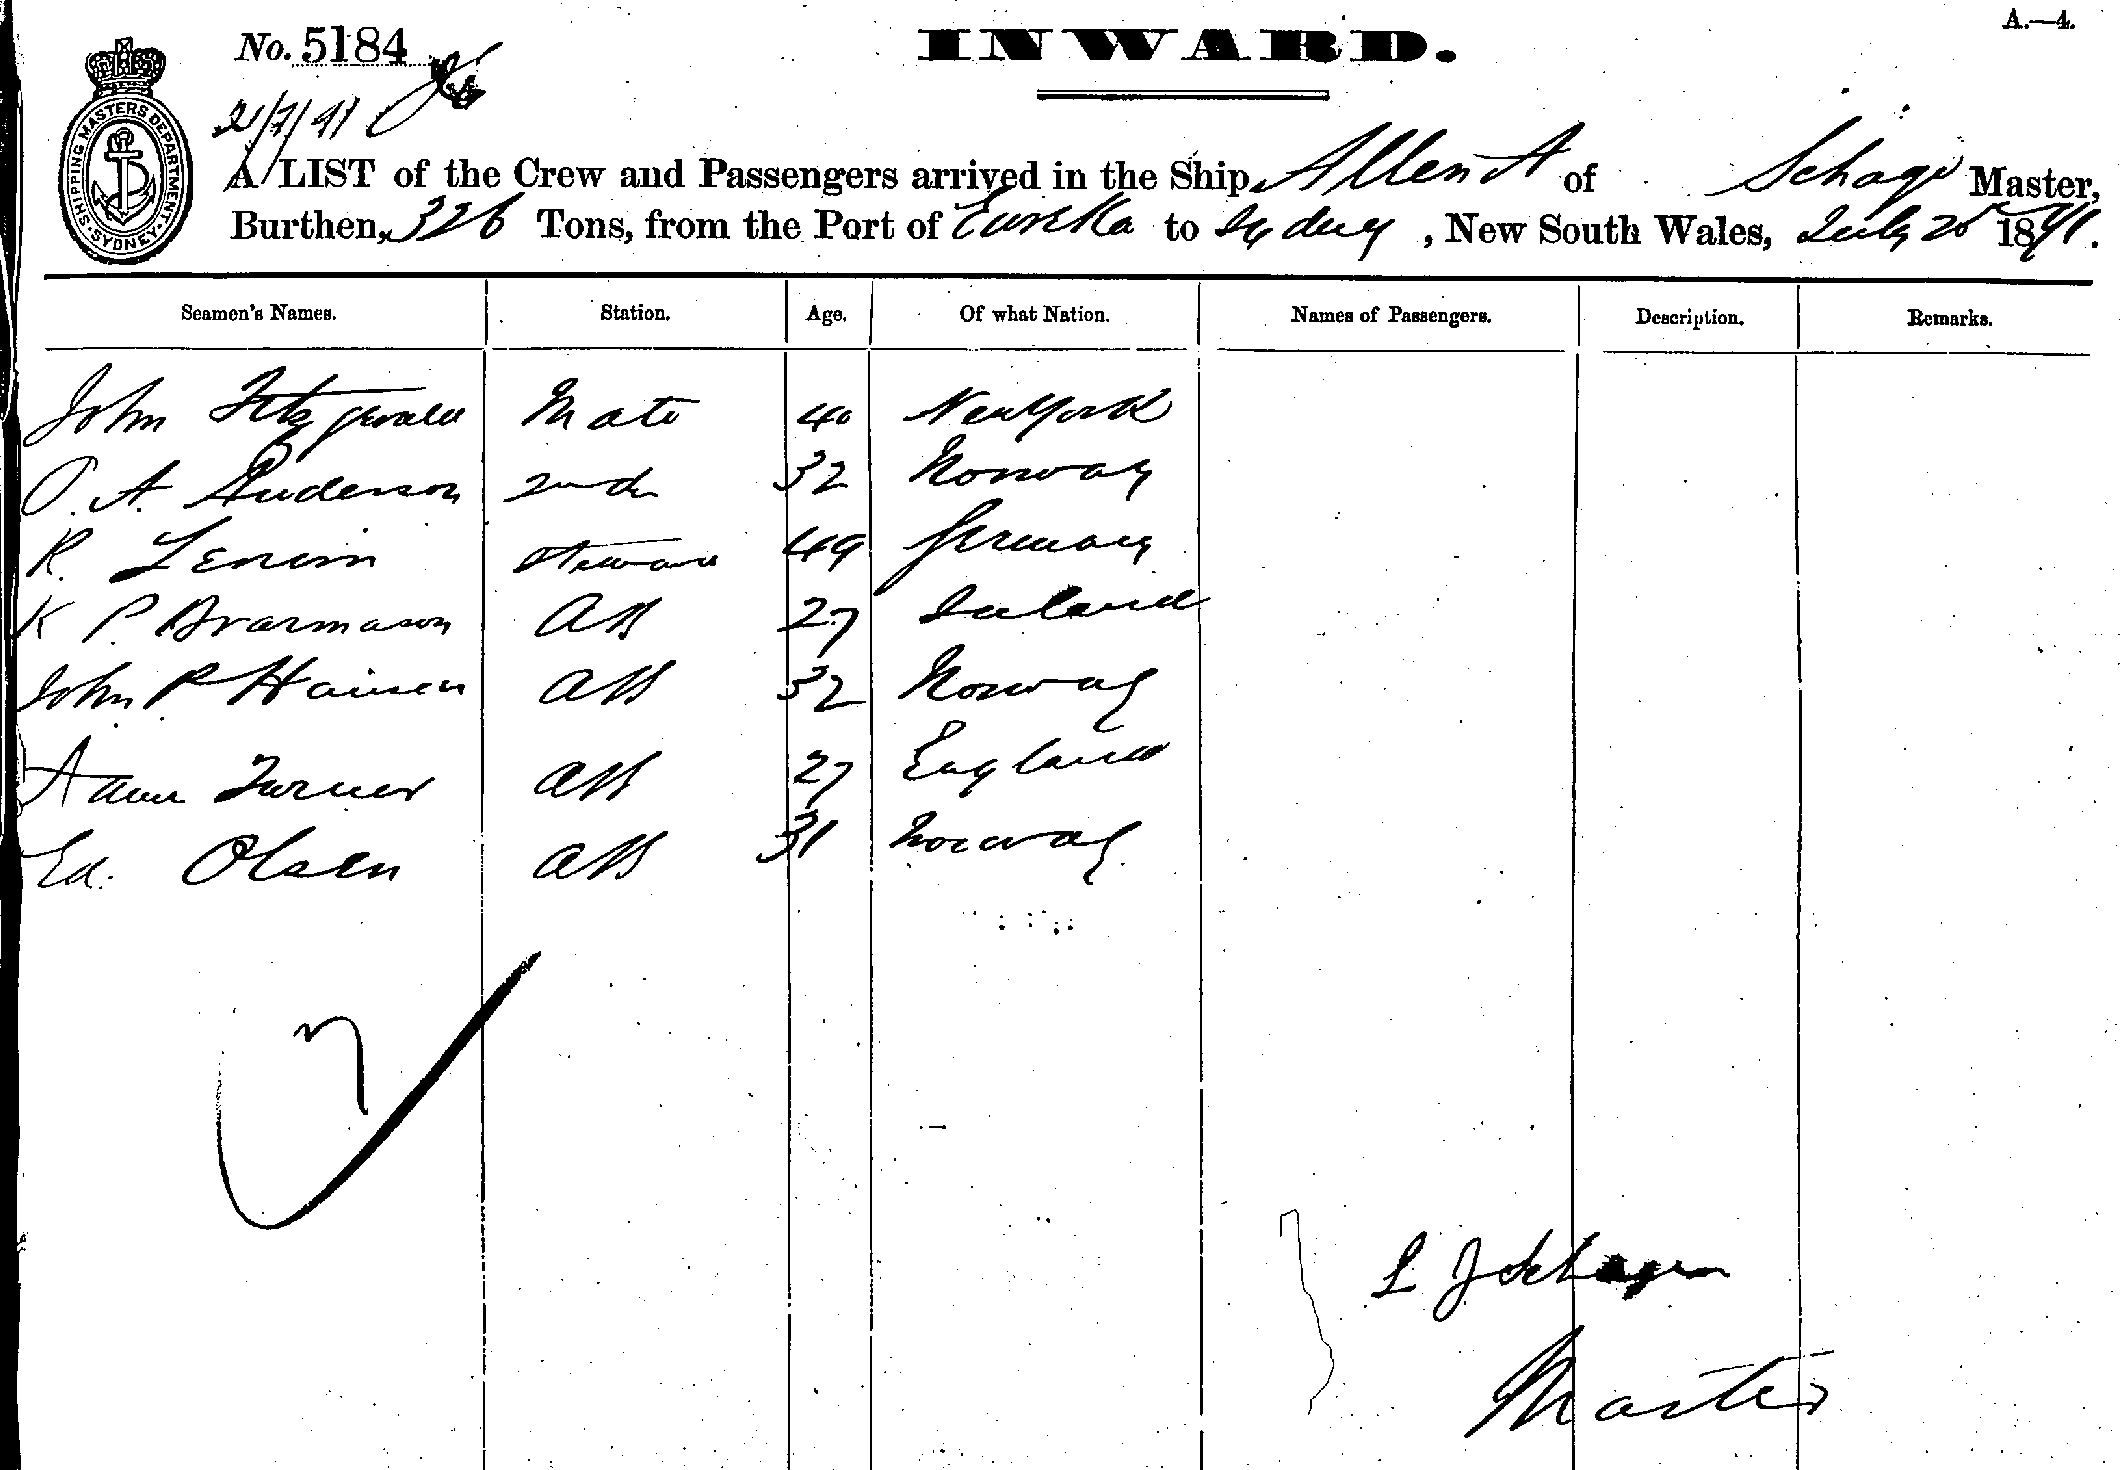 No. 5184
INWARD.
A.—4.
SHIPPING MASTERS DEPARTMENT
SYDNEY
21/7/91
A LIST of the Crew and Passengers arrived in the Ship Allen A of Schage Master,
Burthen, 326 Tons, from the Port of Eureka to Sydney, New South Wales, July 20 1891.
Seamen's Names. Station. Age. Of what Nation. Names of Passengers. Description. Remarks.
John Fitzgerald Mate 40 New York
O. A. Anderson 2nd 32 Norway
R. Steward 49 Germany
K P. AB 27
John P Hansen AB 32 Norway
Adam Turner AB 27 England
Ed. Olsen AB 31 Norway
7
L J Schagen
Master